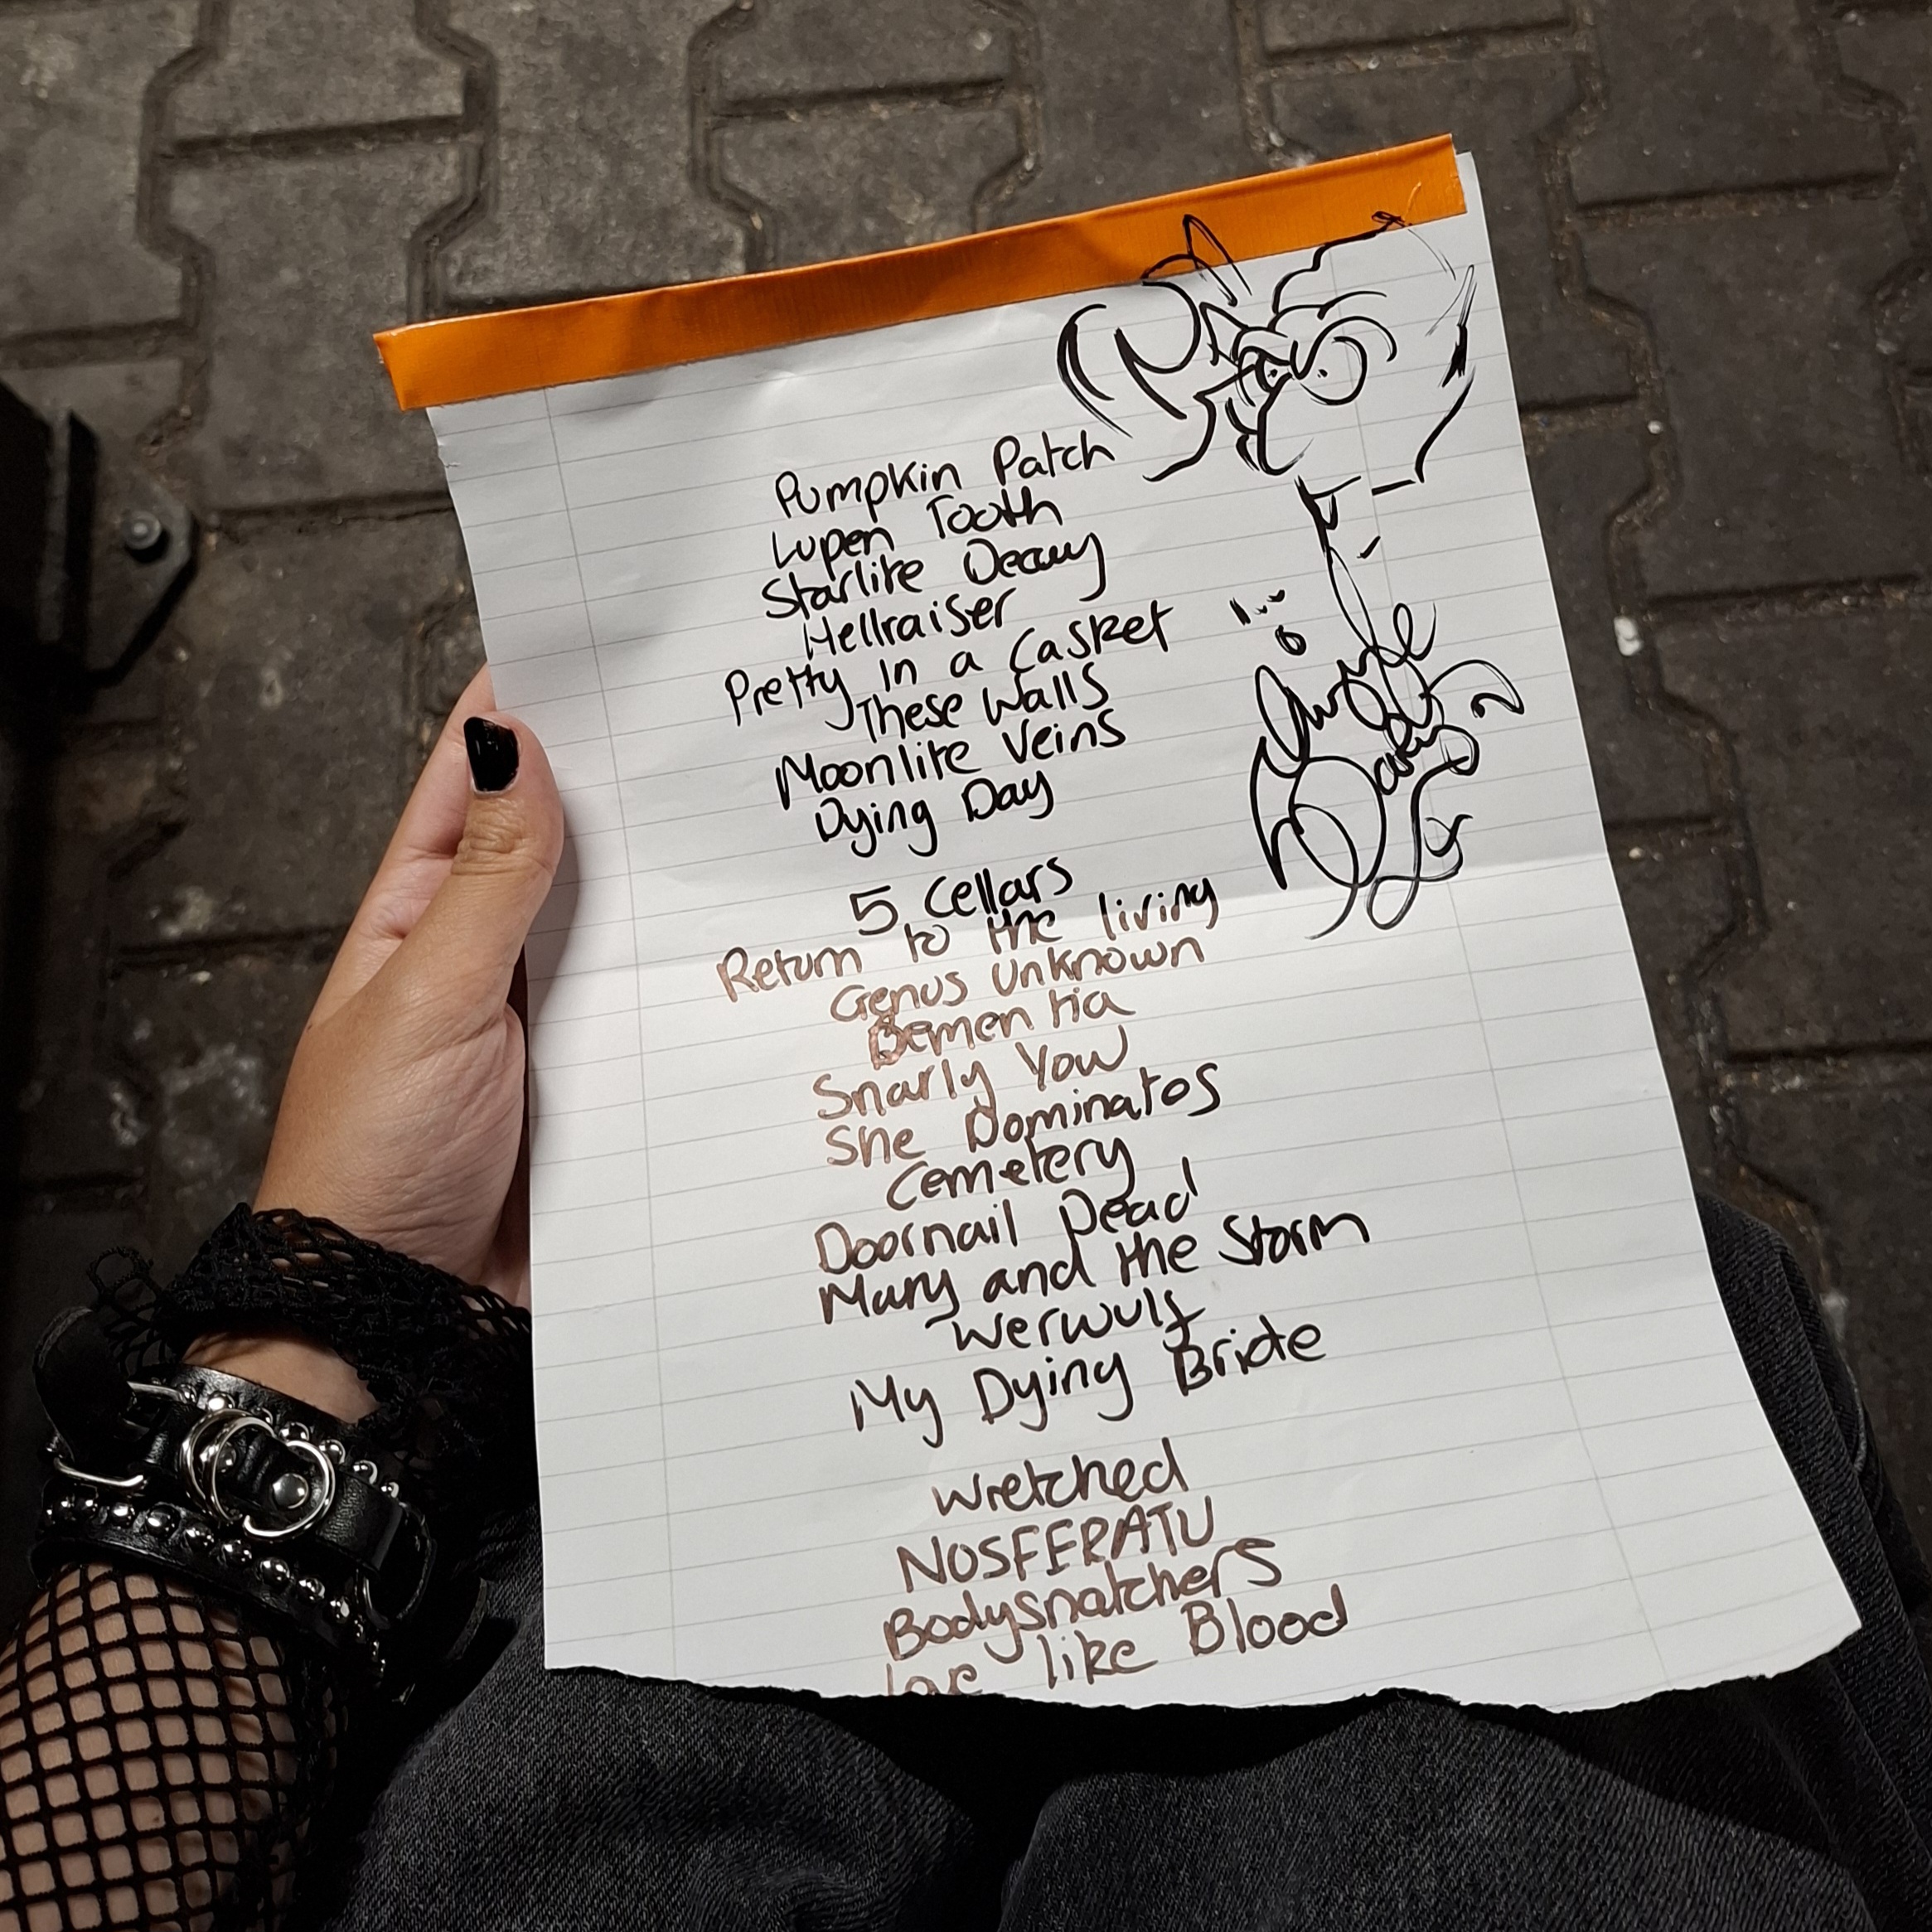 Pumpkin Patch
Lupen Tooth
Starlite Decay
Hellraiser
Pretty In a Casket
These Walls
Moonlite Veins
Dying Day
5 Cellars
Return to the living
Genus Unknown
Dementia
Snarly Yow
She Dominatos
Cemetery
Doornail Dead
Mary and the Storm
Werwulf
My Dying Bride
Wretched
NOSFERATU
Bodysnatchers
love like Blood